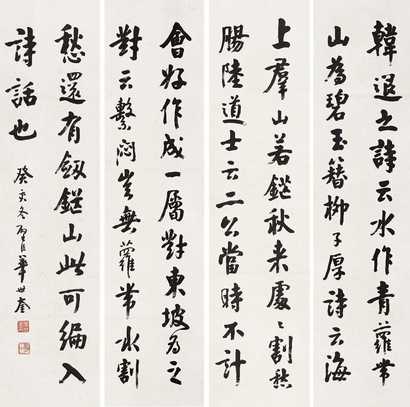 韓退之詩云水作青蘿帶
山為碧玉簪柳子厚詩云海
上羣山若鋩秋来處〻割愁
腸陸道士云二公當時不計
會好作成一屬對東坡為之
對云繫悶豈無蘿帶水割
愁還有劔鋩山此可編入
詩話也
癸亥冬 華世奎